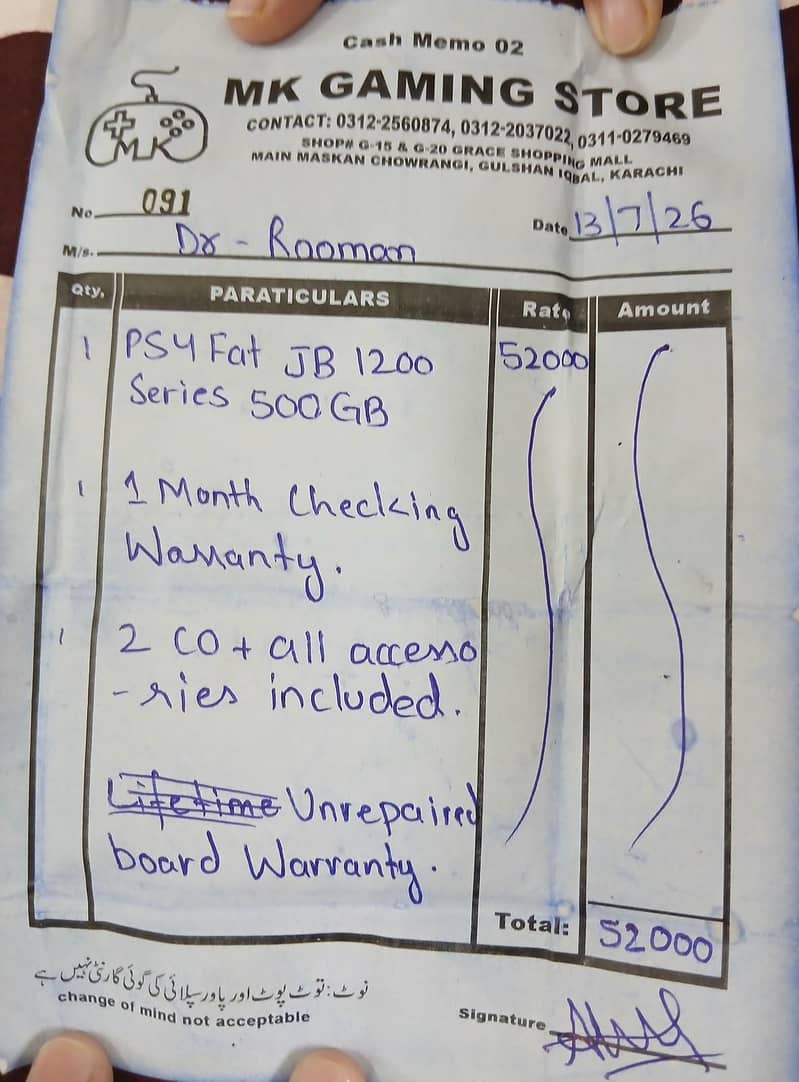 Cash Memo 02
MK GAMING STORE
MK
CONTACT: 0312-2560874, 0312-2037022, 0311-0279469
SHOP# G-15 & G-20 GRACE SHOPPING MALL
MAIN MASKAN CHOWRANGI, GULSHAN IQBAL, KARACHI
No. 091
Date 13/7/26
M/s. Dr - Rooman
Qty. PARATICULARS Rate Amount
1 PS4 Fat JB 1200 52000
Series 500GB
1 1 Month Checking
Warranty.
1 2 CO + all accesso
-ries included.
Lifetime Unrepaired
board Warranty.
Total: 52000
نوٹ: ٹوٹ پوٹ اور پاور سپلائی کی کوئی گارنٹی نہیں ہے
change of mind not acceptable
Signature